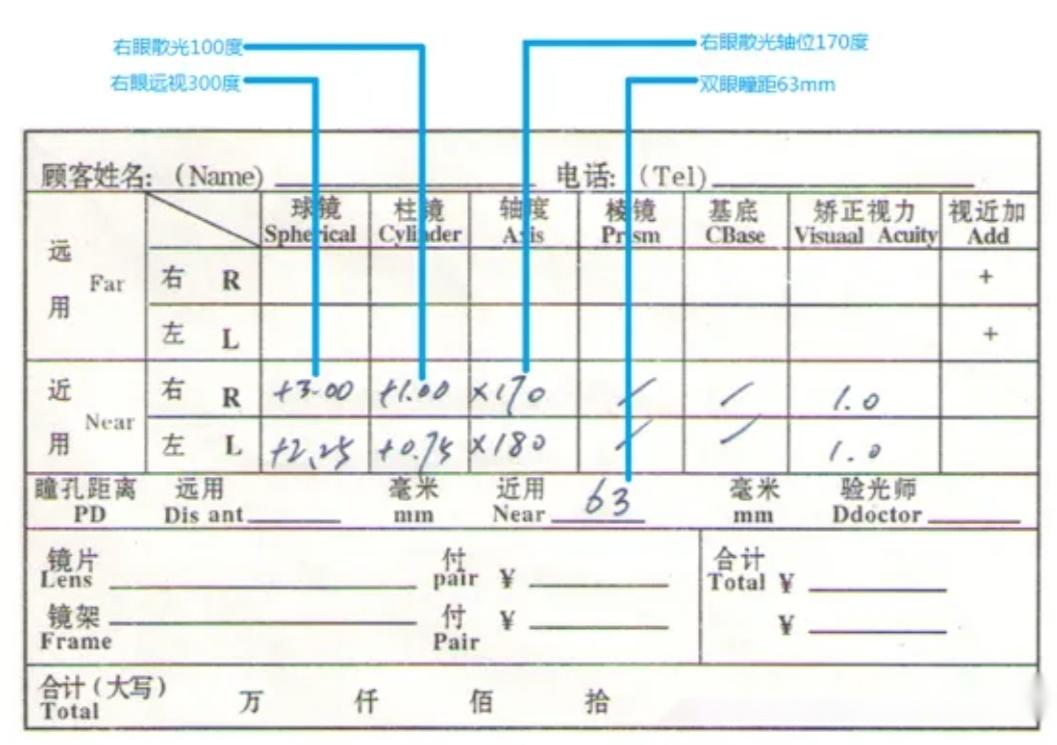 右眼散光100度
右眼散光轴位170度
右眼远视300度
双眼瞳距63mm
顾客姓名: (Name) 电话: (Tel)
球镜 柱镜 轴度 棱镜 基底 矫正视力 视近加
Spherical Cylinder Axis Prism CBase Visuaal Acuity Add
远用 Far
右 R +
左 L +
近用 Near
右 R +3.00 +1.00 ×170 / / 1.0
左 L +2.25 +0.75 ×180 / / 1.0
瞳孔距离 远用 毫米 近用 63 毫米 验光师
PD Dis ant mm Near mm Ddoctor
镜片 付 合计
Lens pair ¥ Total ¥
镜架 付 ¥ ¥
Frame Pair
合计(大写) 万 仟 佰 拾
Total